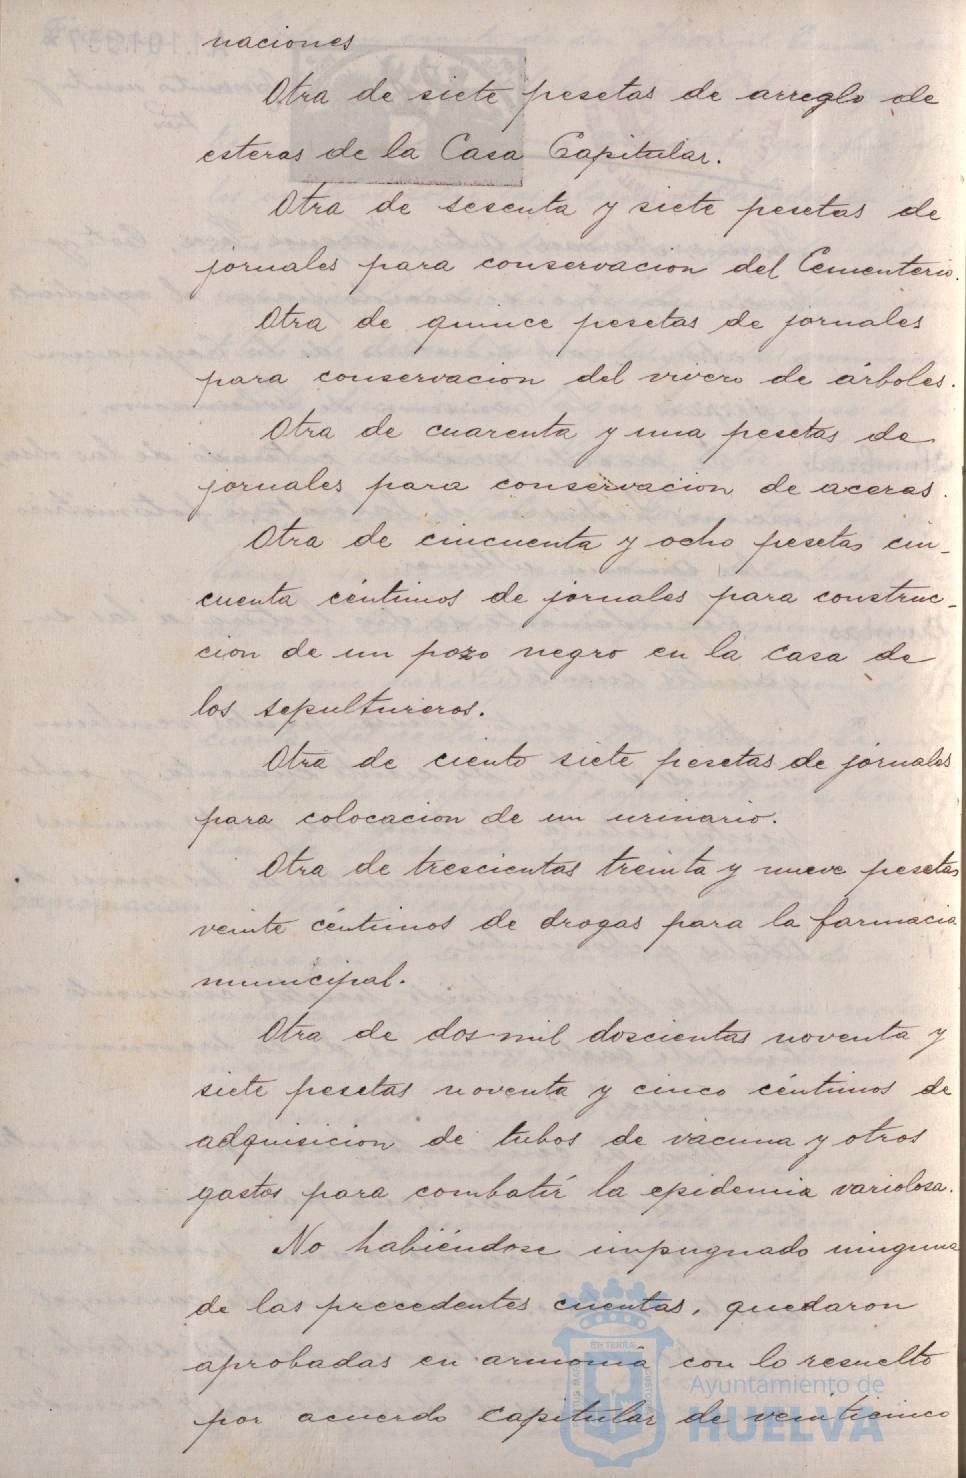 naciones
Otra de siete pesetas de arreglo de
esteras de la Casa Capitular.
Otra de sesenta y siete pesetas de
jornales para conservacion del Cementerio.
Otra de quince pesetas de jornales
para conservacion del vivero de árboles.
Otra de cuarenta y una pesetas de
jornales para conservacion de aceras.
Otra de cincuenta y ocho pesetas cin-
cuenta céntimos de jornales para construc-
cion de un pozo negro en la casa de
los sepultureros.
Otra de ciento siete pesetas de jornales
para colocacion de un urinario.
Otra de trescientas treinta y nueve pesetas
veinte céntimos de drogas para la farmacia
municipal.
Otra de dos mil doscientas noventa y
siete pesetas noventa y cinco céntimos de
adquisicion de tubos de vacuna y otros
gastos para combatir la epidemia variolosa.
No habiéndose impugnado ninguna
de las precedentes cuentas, quedaron
aprobadas en armonia con lo resuelto
por acuerdo capitular de veinticinco
Ayuntamiento de
HUELVA